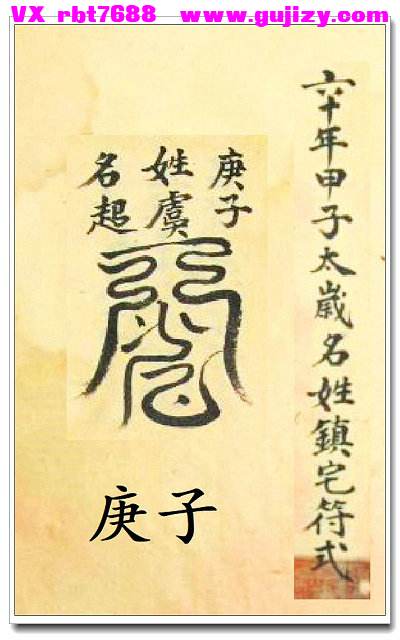 VX rbt7688 www.gujizy.com
六十年甲子太歲名姓鎮宅符式
庚子
姓虞
名起
庚子